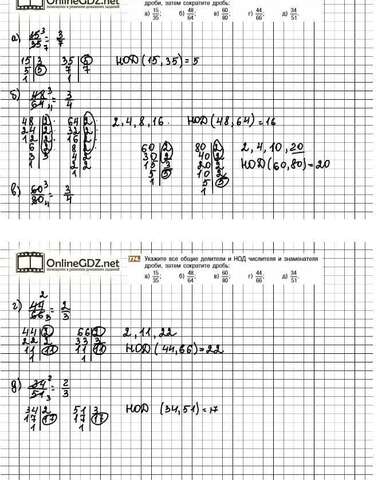 OnlineGDZ.net
дробь, затем сократите дробь:
а) 15/35; б) 48/64; в) 60/80; г) 44/66; д) 34/51.
а) 15³/35₇ = 3/7
15|3 35|5
5|5 7|7
1| 1|
НОД (15, 35) = 5
б) 48³/64₄ = 3/4
48|2 64|2 2, 4, 8, 16. НОД (48, 64) = 16
24|2 32|2
12|2 16|2
6|2 8|2 60|2 80|2 2, 4, 10, 20
3|3 4|2 30|2 40|2 НОД (60, 80) = 20
2|2 15|3 20|2
1 5|5 10|2
1 5|5
1
в) 60³/80₄ = 3/4
OnlineGDZ.net
774. Укажите все общие делители и НОД числителя и знаменателя
дроби, затем сократите дробь:
а) 15/35; б) 48/64; в) 60/80; г) 44/66; д) 34/51.
г) 44²/66₃ = 2/3
44|2 66|2 2, 11, 22
22|2 33|3 НОД (44, 66) = 22
11|11 11|11
1| 1|
д) 34²/51₃ = 2/3
34|2 51|3 НОД (34, 51) = 17
17|17 17|17
1| 1|